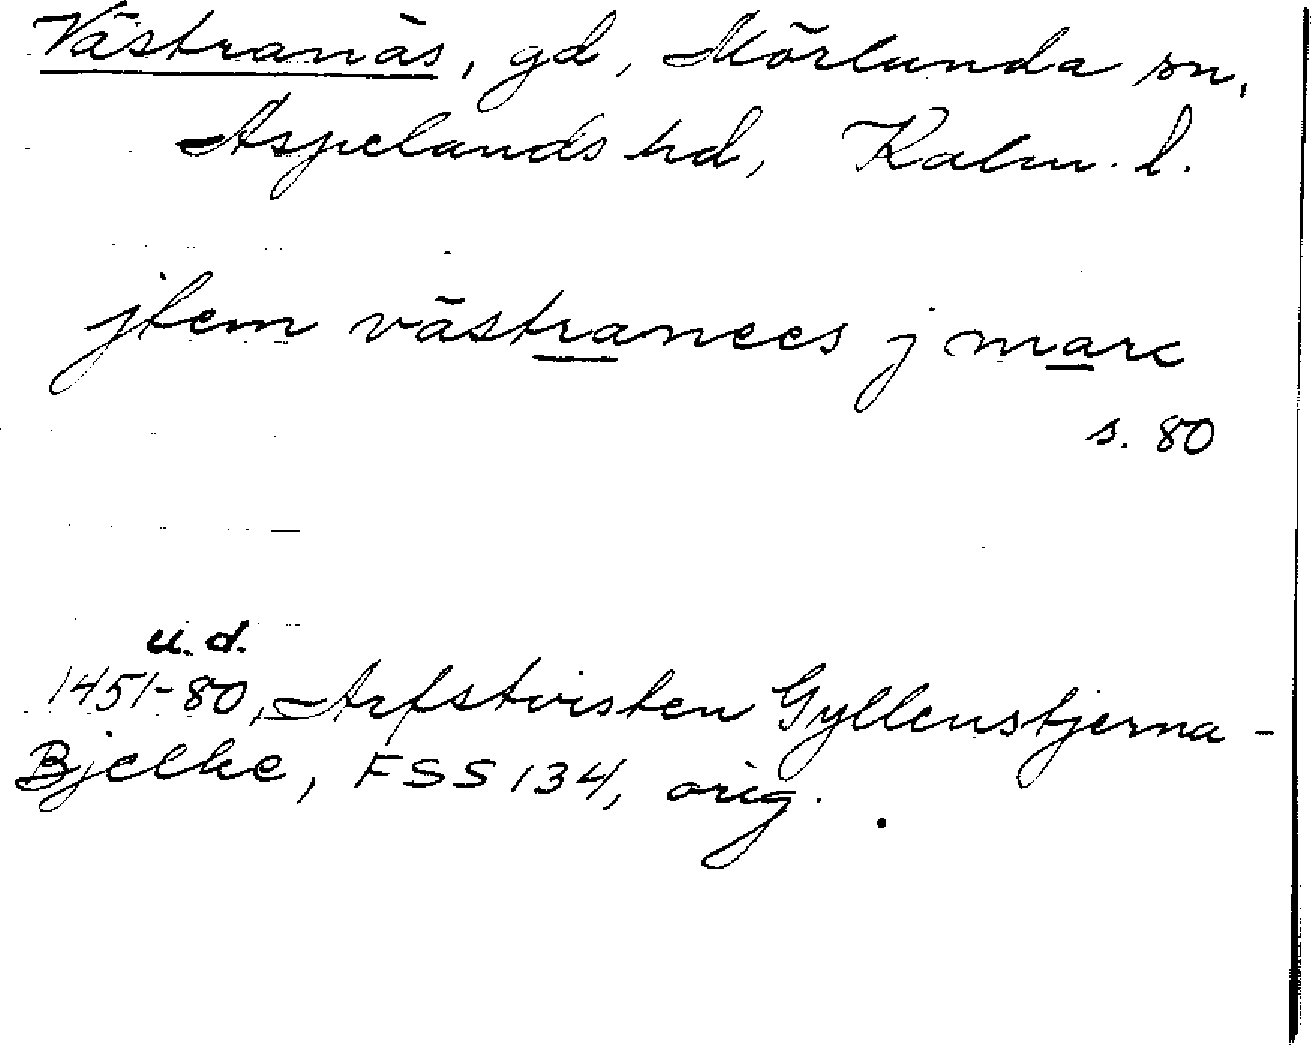 Västranäs, gd, Mörlunda sn,
Aspelands hd, Kalm. l.
jtem västranees j marc
s. 80
u. d.
1451-80, Arfstvisten Gyllenstjerna-
Bjelke, FSS 134, orig.